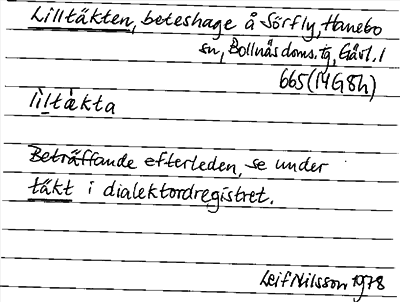 Lilltäkten, beteshage å Sörfly, Hanebo
sn, Bollnäs doms.tg, Gävl. l
665 (14G8h)
lìl̀tækta
Beträffande efterleden, se under
täkt i dialektordregistret.
Leif Nilsson 1978